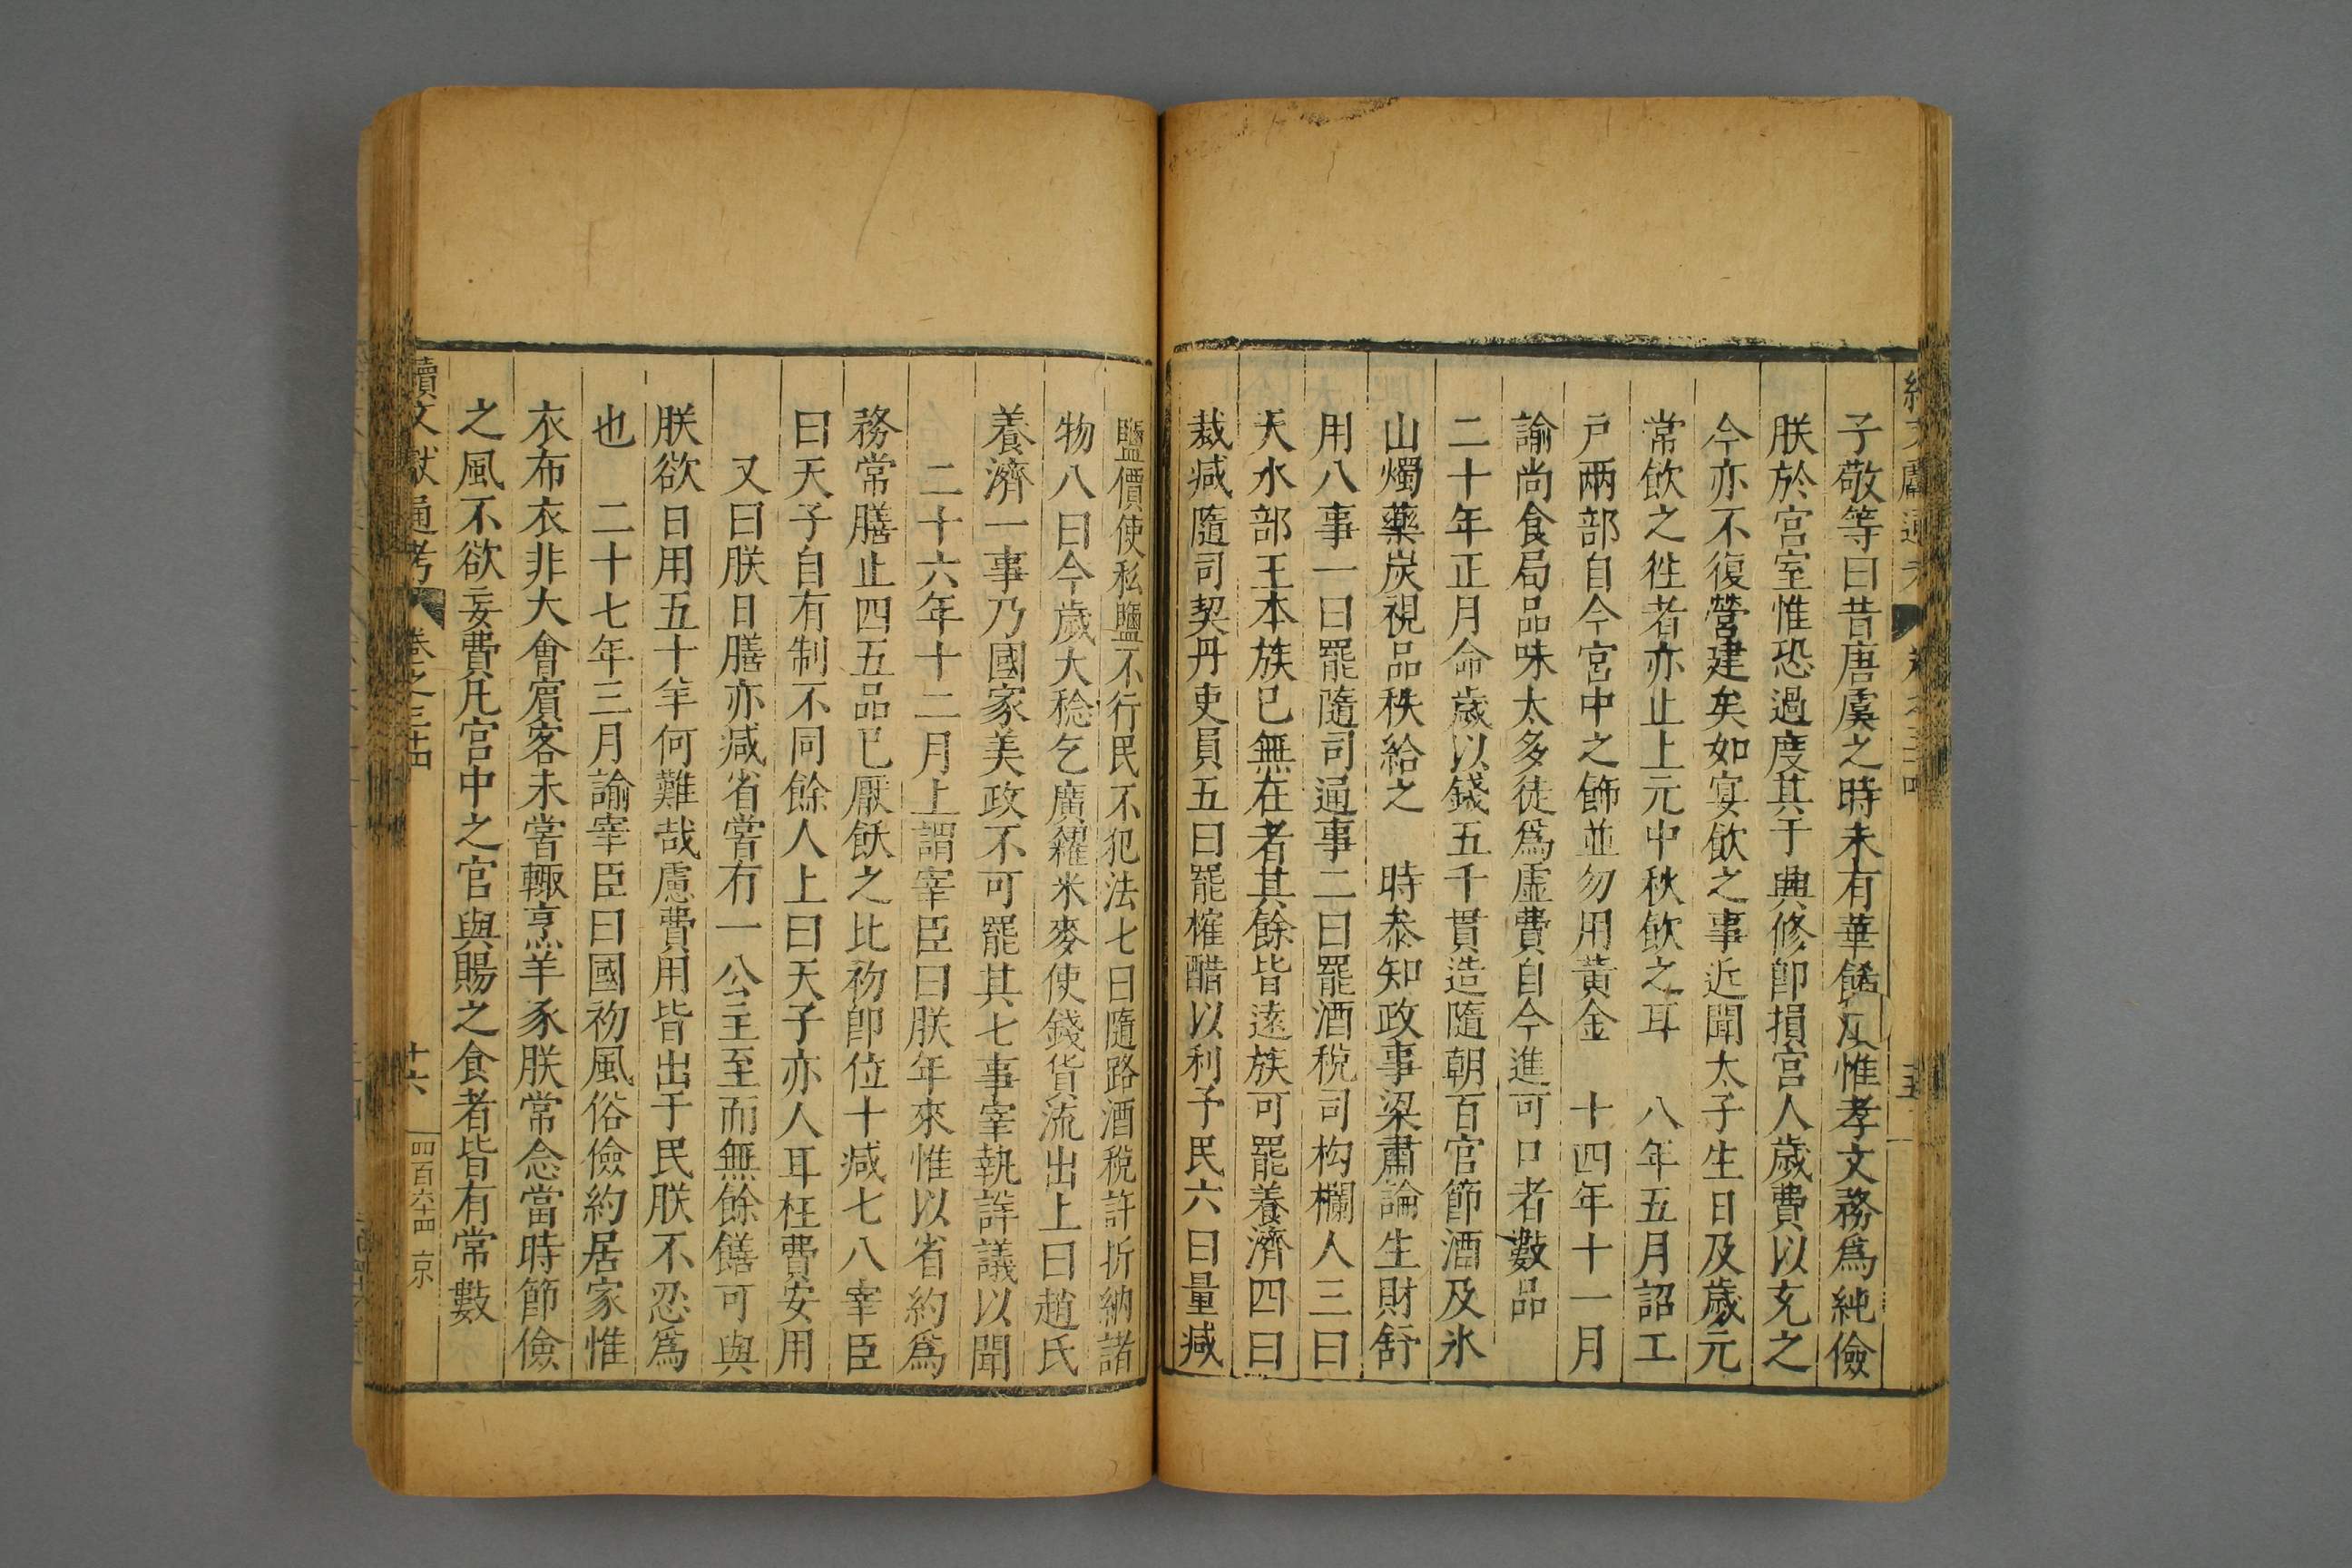 子敬等曰昔唐虞之時未有華餙漢惟孝文務爲純儉
朕於宮室惟恐過度其于興修即損宮人歲費以充之
今亦不復營建矣如宴飲之事近聞太子生日及歲元
常飲之徃者亦止上元中秋飲之耳　八年五月詔工
戸兩部自今宮中之飾並勿用黃金　十四年十一月
諭尚食局品味太多徒爲虛費自今進可口者數品
二十年正月命歲以錢五千貫造隨朝百官節酒及氷
山燭藥炭視品秩給之　時叅知政事梁肅論生財舒
用八事一曰罷隨司通事二曰罷酒稅司杓欄人三曰
天水郡王本族已無在者其餘皆遠族可罷養濟四曰
裁减隨司契丹吏員五曰罷榷醋以利予民六曰量减
鹽價使私鹽不行民不犯法七曰隨路酒稅許折納諸
物八曰今歲大稔乞廣糴米麥使錢貨流出上曰趙氏
養濟一事乃國家美政不可罷其七事宰執詳議以聞
二十六年十二月上謂宰臣曰朕年來惟以省約爲
務常膳止四五品已厭飫之比初即位十减七八宰臣
曰天子自有制不同餘人上曰天子亦人耳枉費安用
又曰朕日膳亦减省嘗有一公主至而無餘饍可與
朕欲日用五十羊何難哉慮費用皆出于民朕不忍爲
也　二十七年三月諭宰臣曰國初風俗儉約居家惟
衣布衣非大會賓客未嘗輙烹羊豕朕常念當時節儉
之風不欲妄費凡宮中之官與賜之食者皆有常數
續文獻通考　卷之三十四　十六　四百六十四　京